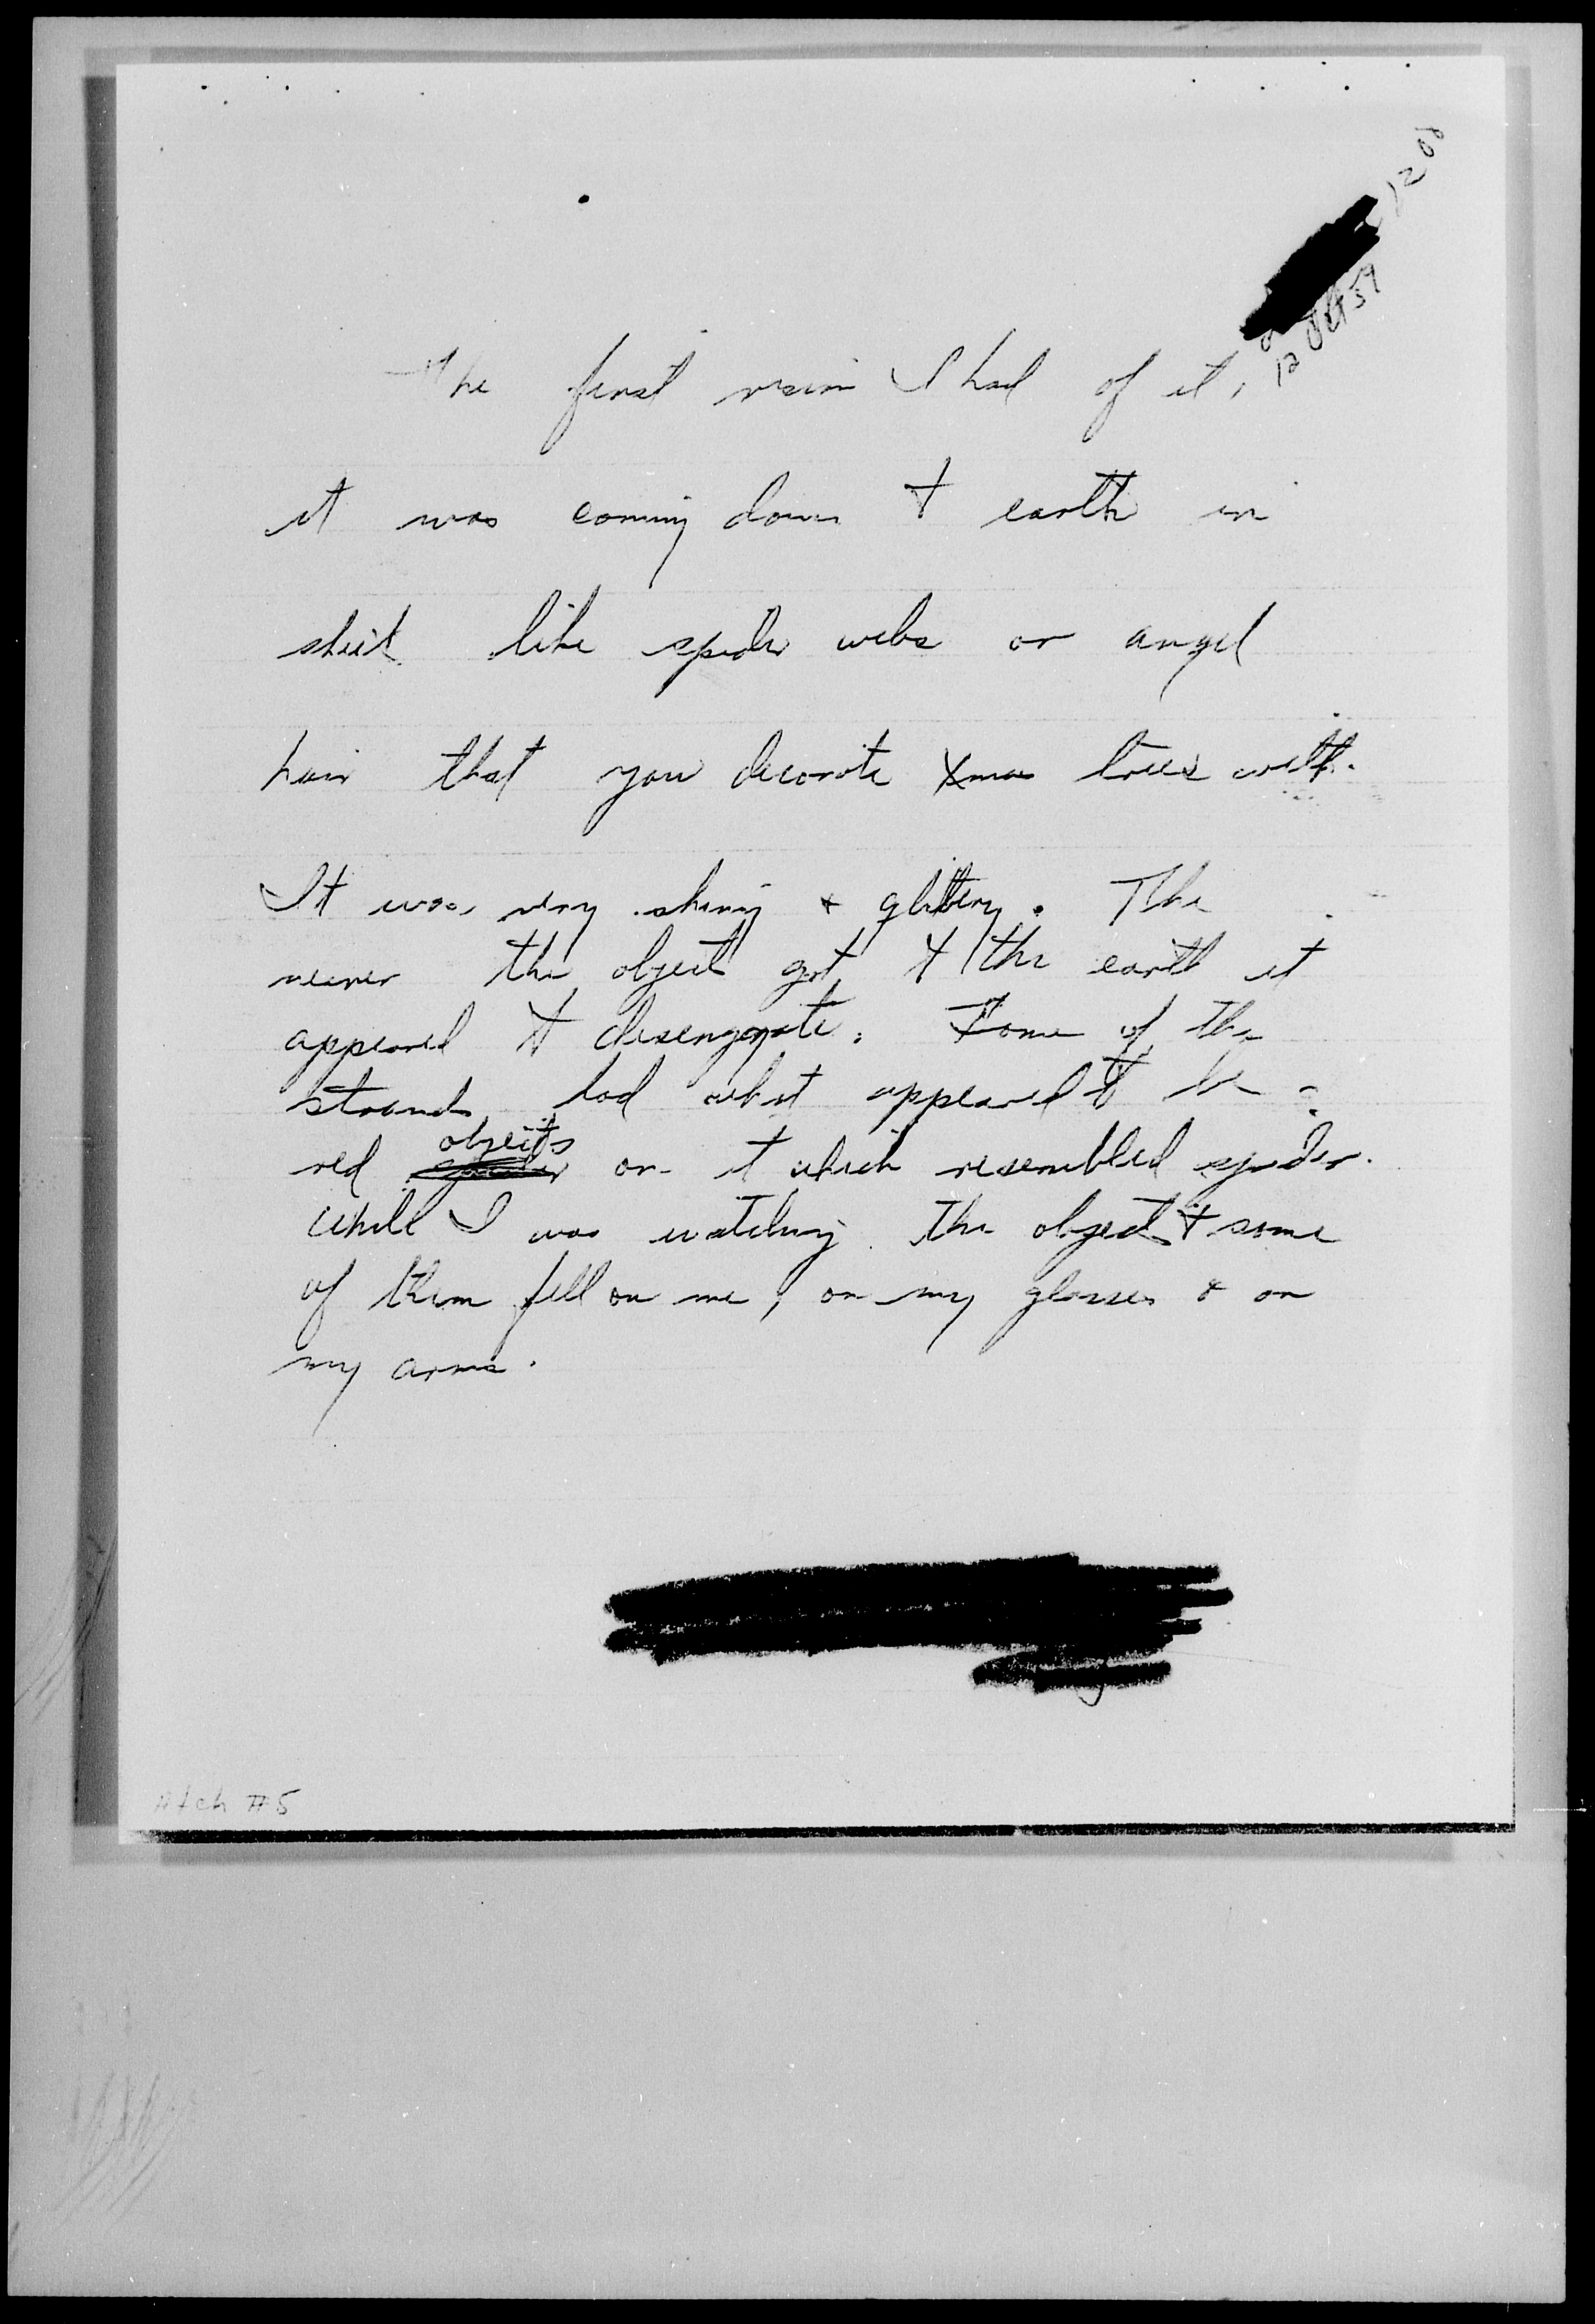 1200
12 Oct 59
The first vision I had of it,
it was coming down to earth in
sheet like spider webs or angel
hair that you decorate Xmas trees with.
It was very shiny & glittery. The
nearer the object got to the earth it
appeared to disengrate. Some of the
strands had what appeared to be a
red objects on it which resembled spider.
While I was watching the object & some
of them fell on me, on my glasses & on
my arms.
Atch #5